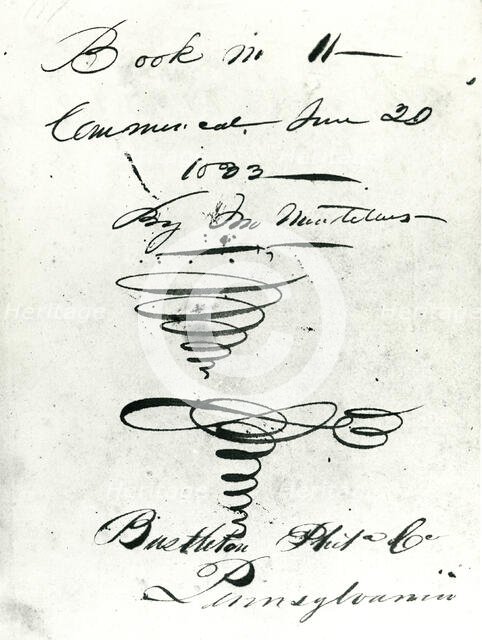 Book no 11
Commenced June 20
1833
By Jno
Bustleton Phila Co
Pennsylvania
Heritage
Heritage
Heritage
Heritage